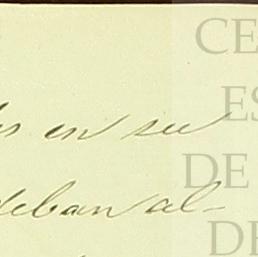 en su
deban al-
CE
ES
DE
DE